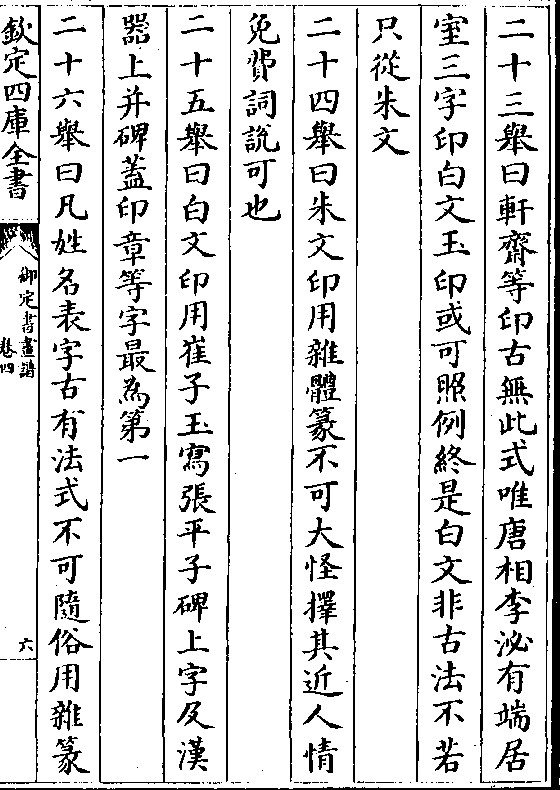 二十三舉曰軒齋等印古無此式唯唐相李泌有端居
室三字印白文玉印或可照例終是白文非古法不若
只從朱文
二十四舉曰朱文印用雜體篆不可大怪擇其近人情
免費詞説可也
二十五舉曰白文印用崔子玉寫張平子碑上字及漢
器上并碑蓋印章等字最為第一
二十六舉曰凡姓名表字古有法式不可隨俗用雜篆
欽定四庫全書
御定書畫譜
卷四
六